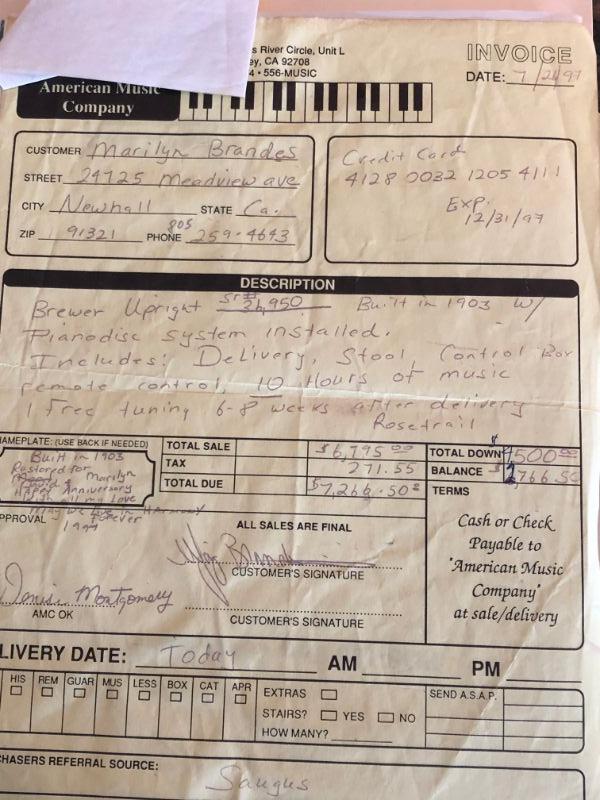 s River Circle, Unit L
ey, CA 92708
4 • 556-MUSIC
INVOICE
DATE: 7/21/97
American Music
Company
CUSTOMER Marilyn Brandes
STREET 24725 Meadview ave
CITY Newhall STATE Ca.
805
ZIP 91321 PHONE 259-4643
Credit Card
4128 0032 1205 4111
Exp:
12/31/97
DESCRIPTION
Brewer Upright Sr# 36,950 Built in 1903 W/
Pianodisc System installed.
Includes: Delivery, Stool, Control Box
remote control, 10 Hours of music
1 Free tuning 6-8 weeks after delivery
Rosetrail
NAMEPLATE: (USE BACK IF NEEDED)
Built in 1903
Restored for
Marilyn
Happy Anniversary
with all my Love
May we Live in Harmony
Forever
1997
TOTAL SALE $6,795 00
TAX 271.55
TOTAL DUE $7,266.50
TOTAL DOWN $4500 00
BALANCE $2766.50
TERMS
Cash or Check
Payable to
"American Music
Company"
at sale/delivery
PPROVAL
ALL SALES ARE FINAL
CUSTOMER'S SIGNATURE
Denise Montgomery
AMC OK
CUSTOMER'S SIGNATURE
LIVERY DATE: Today AM PM
HIS REM GUAR MUS LESS BOX CAT APR
EXTRAS
STAIRS? YES NO
HOW MANY?
SEND A.S.A.P.
HASERS REFERRAL SOURCE:
Saugus